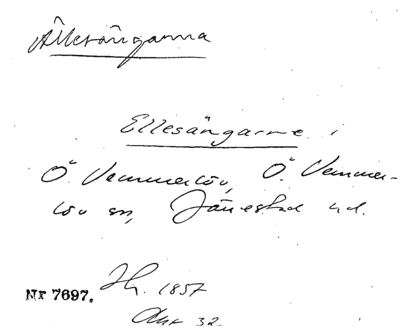 Ällesängarna
Ellesängarne i
Ö. Vemmerlöv, Ö. Vemmer-
löv sn, Järrestad hd.
Nr 7697. Hh. 1857
Akt 32